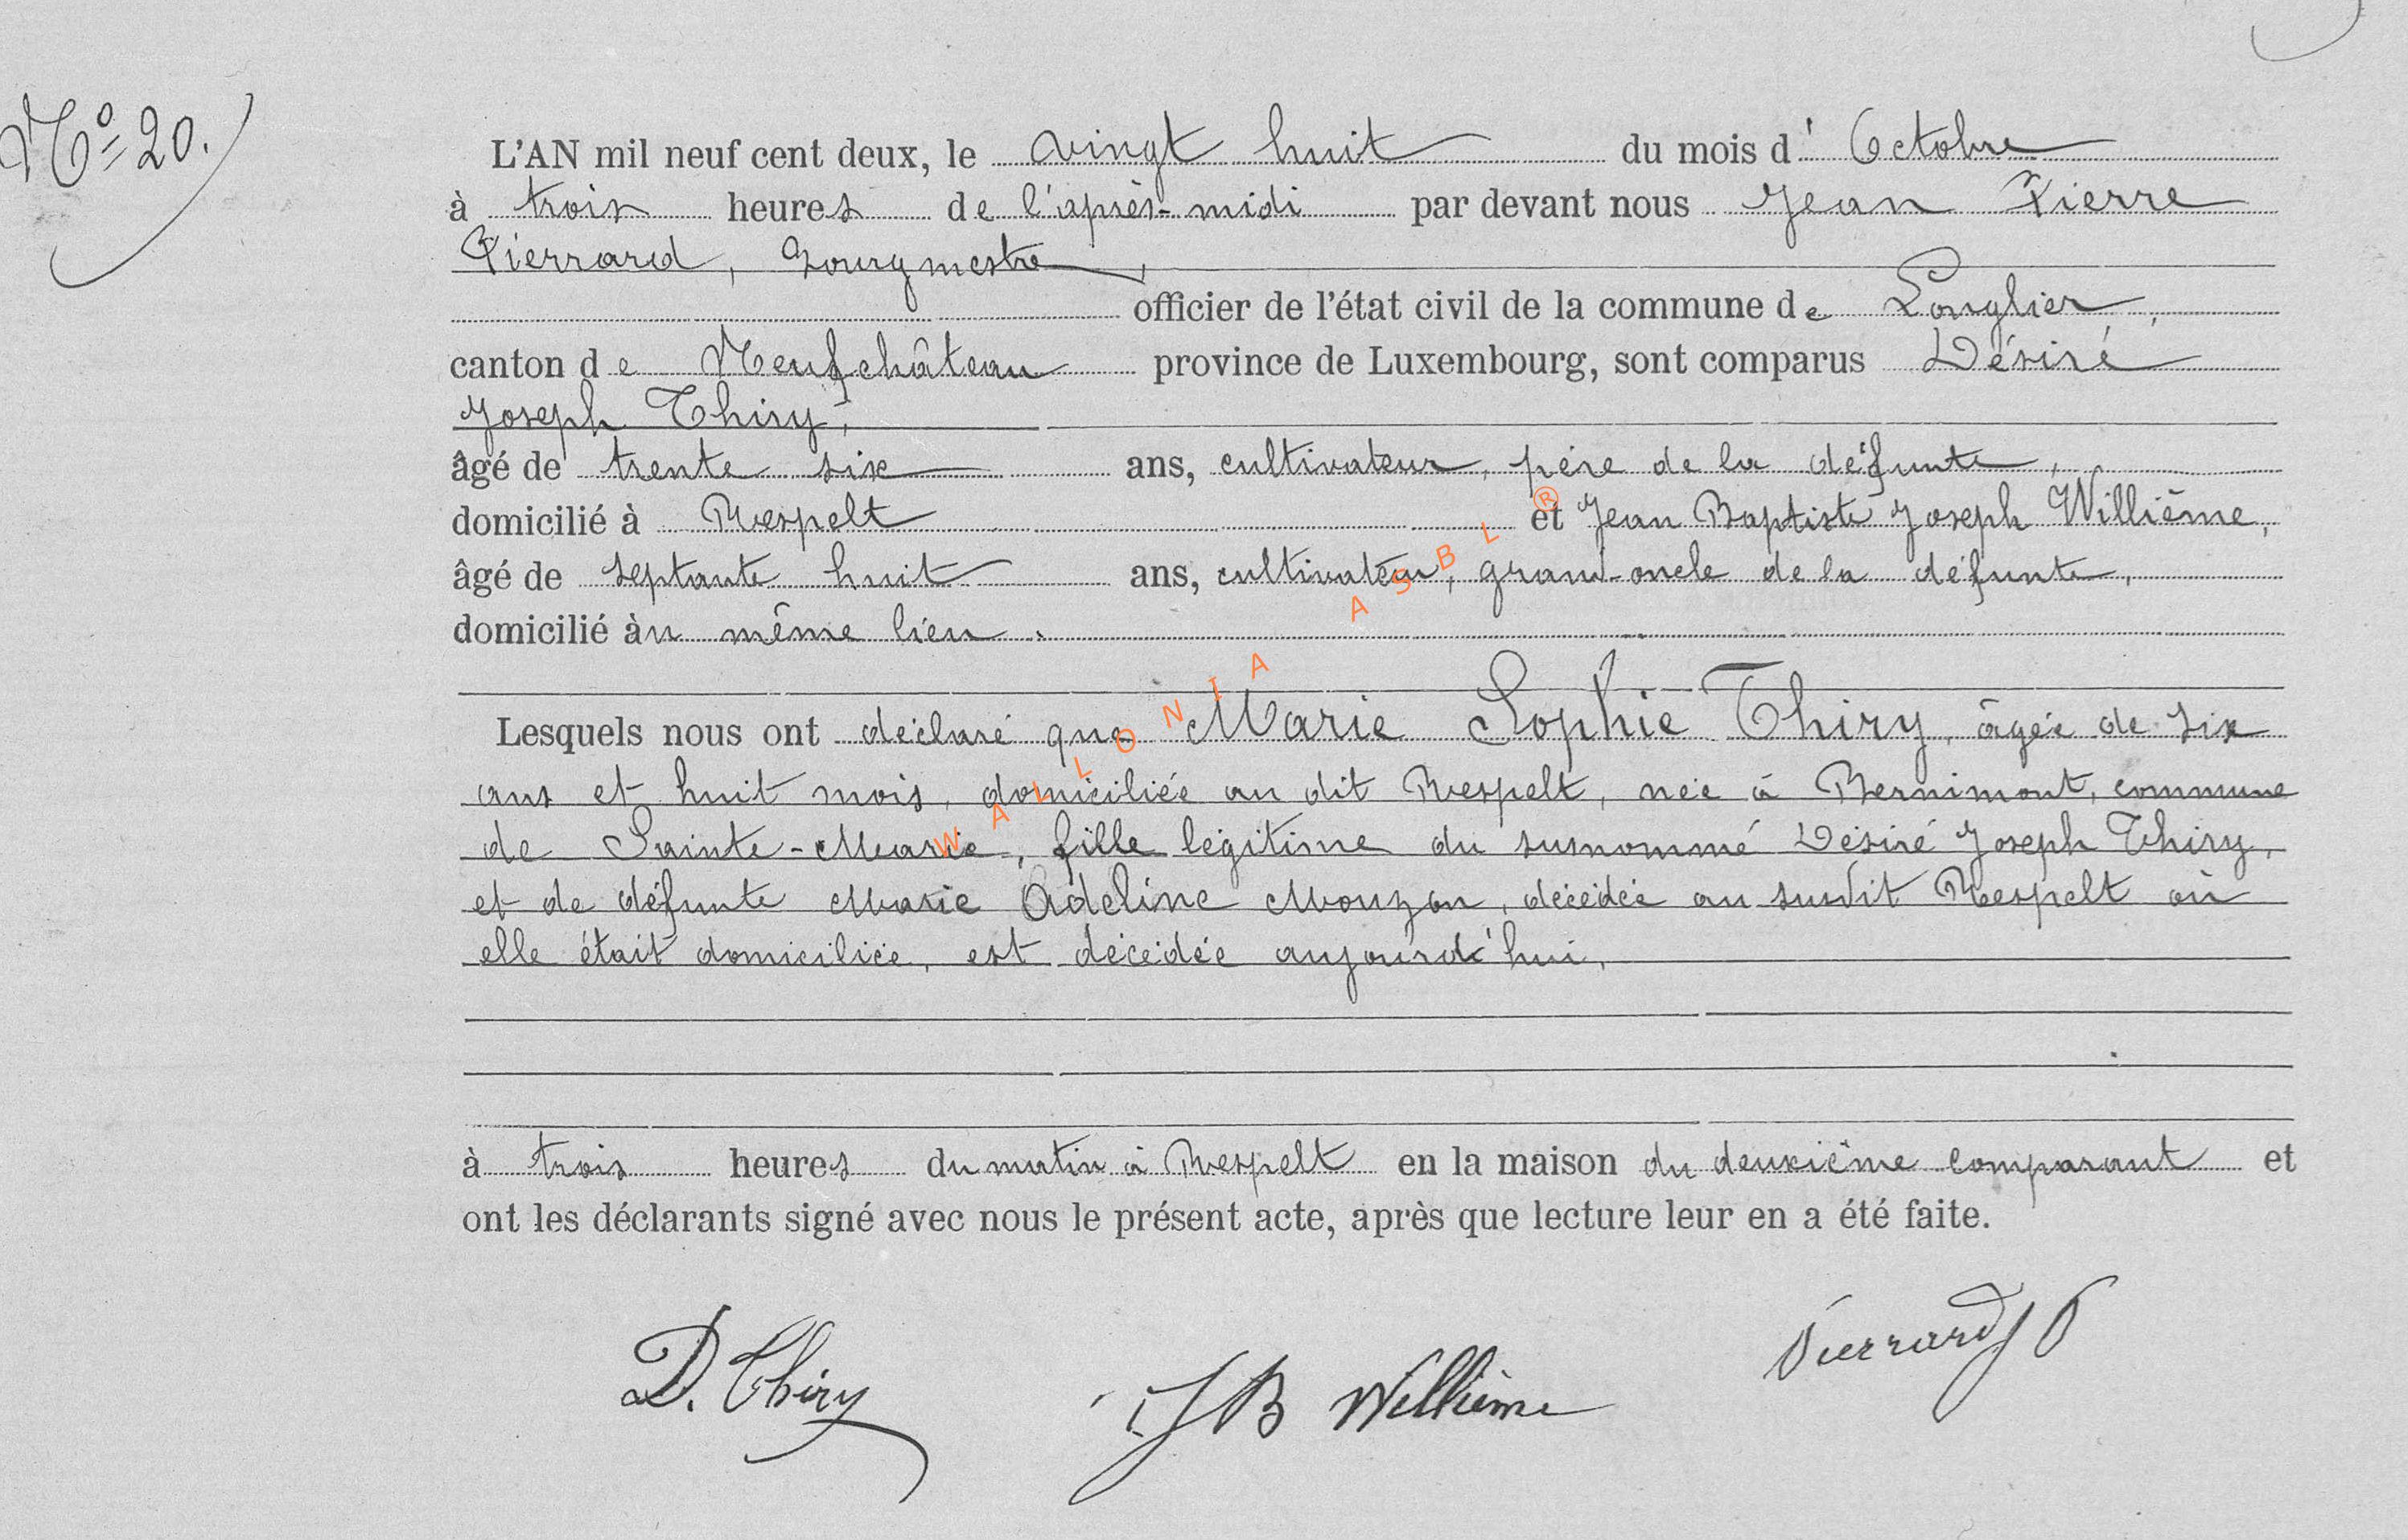 No 20.
L'AN mil neuf cent deux, le vingt huit du mois d' Octobre
à trois heures de l'après-midi par devant nous Jean Pierre
Pierrard, Bourgmestre,
officier de l'état civil de la commune de Longlier,
canton de Neufchâteau province de Luxembourg, sont comparus Désiré
Joseph Thiry,
âgé de trente six ans, cultivateur, père de la défunte,
domicilié à Respelt et Jean Baptiste Joseph Willième,
âgé de septante huit ans, cultivateur, grand-oncle de la défunte,
domicilié au même lieu.
Lesquels nous ont déclaré que Marie Sophie Thiry, âgée de six
ans et huit mois, domiciliée au dit Respelt, née à Bernimont, commune
de Sainte-Marie, fille légitime du susnommé Désiré Joseph Thiry,
et de défunte Marie Adeline Mouzon, décédée au susdit Respelt où
elle était domiciliée, est décédée aujourd'hui,
à trois heures du matin à Respelt en la maison du deuxième comparant et
ont les déclarants signé avec nous le présent acte, après que lecture leur en a été faite.
D. Thiry JB Willième Pierrard JP
WALLONIA ASBL ®